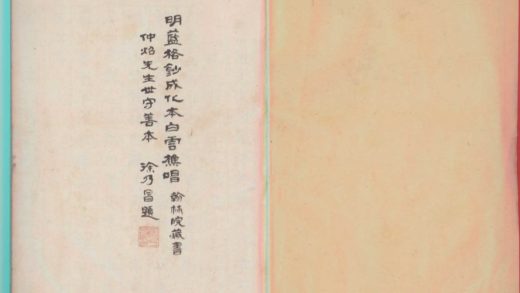 明藍格鈔成化本白雲樵唱 翰林院藏書
仲炤先生世守善本 徐乃昌題